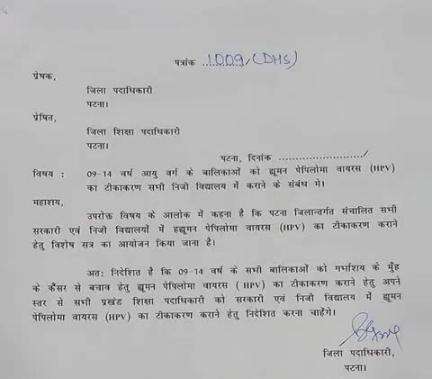 पत्रांक 1009/(DHS)
प्रेषक,
जिला पदाधिकारी
पटना।
प्रेषित,
जिला शिक्षा पदाधिकारी
पटना।
पटना, दिनांक ......................./
विषय : 09-14 वर्ष आयु वर्ग के बालिकाओं को ह्यूमन पेपिलोमा वायरस (HPV)
का टीकाकरण सभी निजी विद्यालय में कराने के संबंध में।
महाशय,
उपरोक्त विषय के आलोक में कहना है कि पटना जिलान्तर्गत संचालित सभी
सरकारी एवं निजी विद्यालयों में ह्यूमन पेपिलोमा वायरस (HPV) का टीकाकरण कराने
हेतु विशेष सत्र का आयोजन किया जाना है।
अतः निदेशित है कि 09-14 वर्ष के सभी बालिकाओं को गर्भाशय के मुँह
के कैंसर से बचाव हेतु ह्यूमन पेपिलोमा वायरस (HPV) का टीकाकरण कराने हेतु अपने
स्तर से सभी प्रखंड शिक्षा पदाधिकारी को सरकारी एवं निजी विद्यालय में ह्यूमन
पेपिलोमा वायरस (HPV) का टीकाकरण कराने हेतु निदेशित करना चाहेंगे।
जिला पदाधिकारी,
पटना।